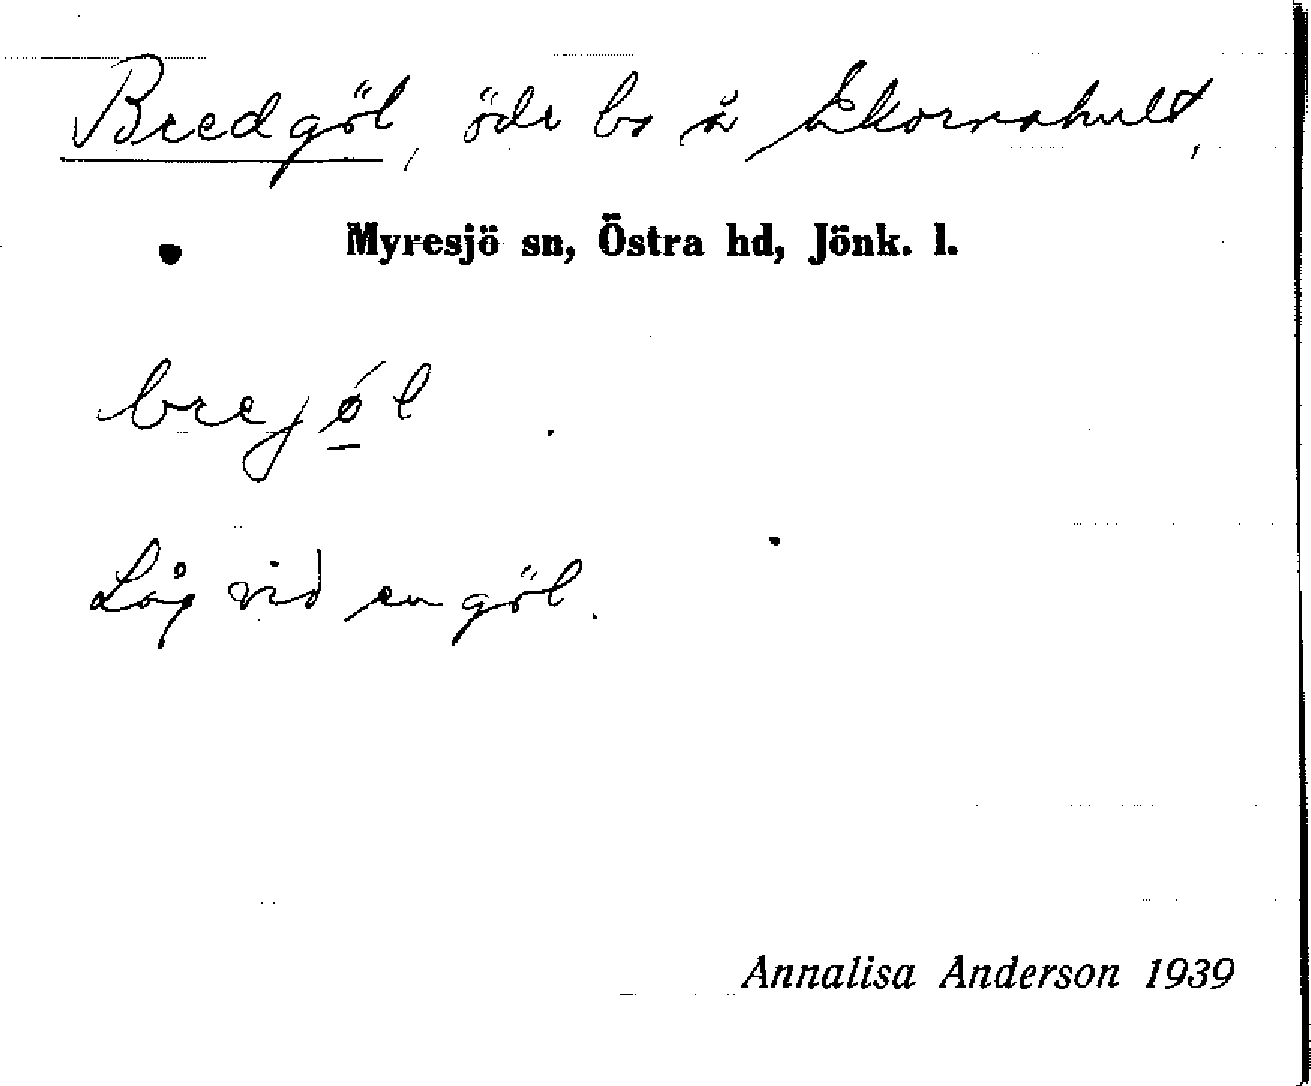 Bredgöl, öde bs å Ekornahult,
Myresjö sn, Östra hd, Jönk. l.
brejøl
Låg vid en göl.
Annalisa Anderson 1939